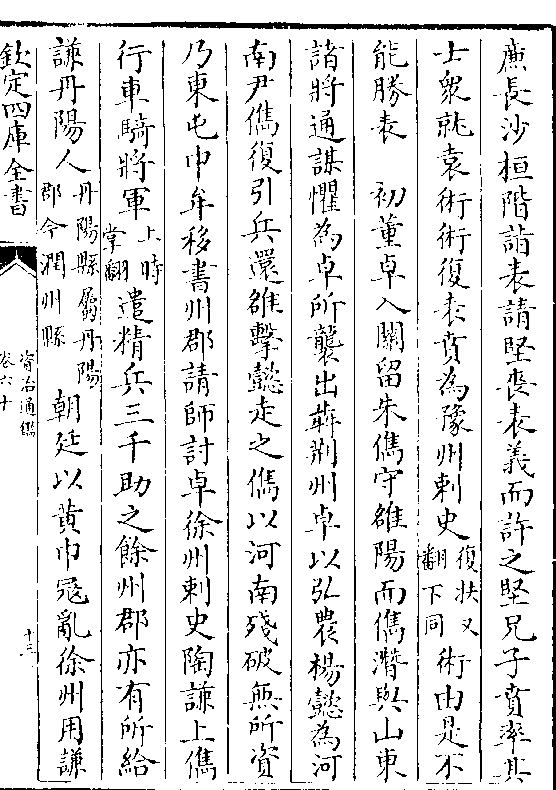 廉長沙桓階詣表請堅喪表義而許之堅兄子賁率其
士衆就袁術術復表賁為豫州刺史復扶又翻下同術由是不
能勝表　初董卓入關留朱儁守雒陽而儁潛與山東
諸將通謀懼為卓所襲出奔荆州卓以弘農楊懿為河
南尹儁復引兵還雒擊懿走之儁以河南殘破無所資
乃東屯中牟移書州郡請師討卓徐州刺史陶謙上儁
行車騎將軍上時掌翻遣精兵三千助之餘州郡亦有所給
謙丹陽人丹陽縣屬丹陽郡今潤州縣　朝廷以黄巾寇亂徐州用謙
欽定四庫全書
資治通鑑
卷六十
十三